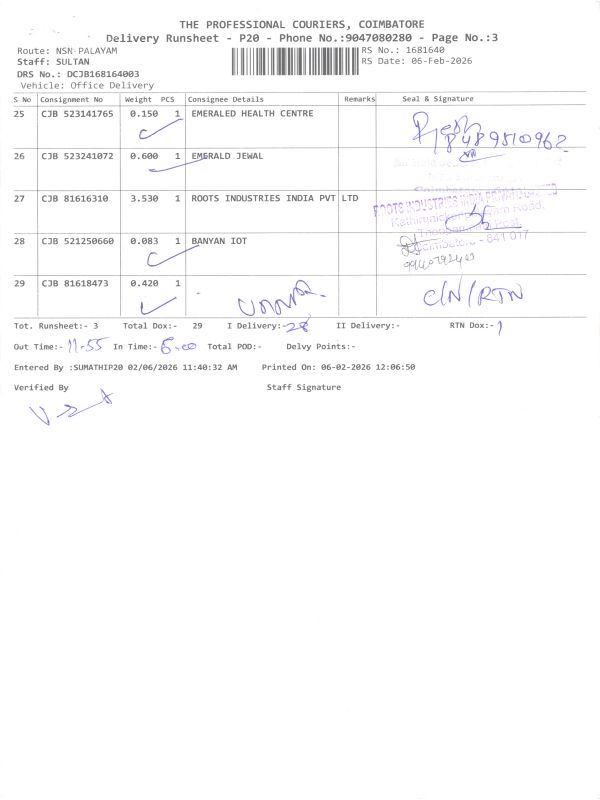 THE PROFESSIONAL COURIERS, COIMBATORE
Delivery Runsheet - P20 - Phone No.:9047080280 - Page No.:3
Route: NSN PALAYAM
RS No.: 1681640
Staff: SULTAN
RS Date: 06-Feb-2026
DRS No.: DCJB168164003
Vehicle: Office Delivery
S No Consignment No Weight PCS Consignee Details Remarks Seal & Signature
25 CJB 523141765 0.150 1 EMERALED HEALTH CENTRE
8489510962
26 CJB 523241072 0.600 1 EMERALD JEWAL
27 CJB 81616310 3.530 1 ROOTS INDUSTRIES INDIA PVT LTD
ROOTS INDUSTRIES INDIA PRIVATE LIMITED
28 CJB 521250660 0.083 1 BANYAN IOT
641 017
29 CJB 81618473 0.420 1 C/N/RTN
Tot. Runsheet:- 3 Total Dox:- 29 I Delivery:- 28 II Delivery:- RTN Dox:- 1
Out Time:- 11-55 In Time:- 5-00 Total POD:- Delvy Points:-
Entered By :SUMATHIP20 02/06/2026 11:40:32 AM Printed On: 06-02-2026 12:06:50
Verified By Staff Signature